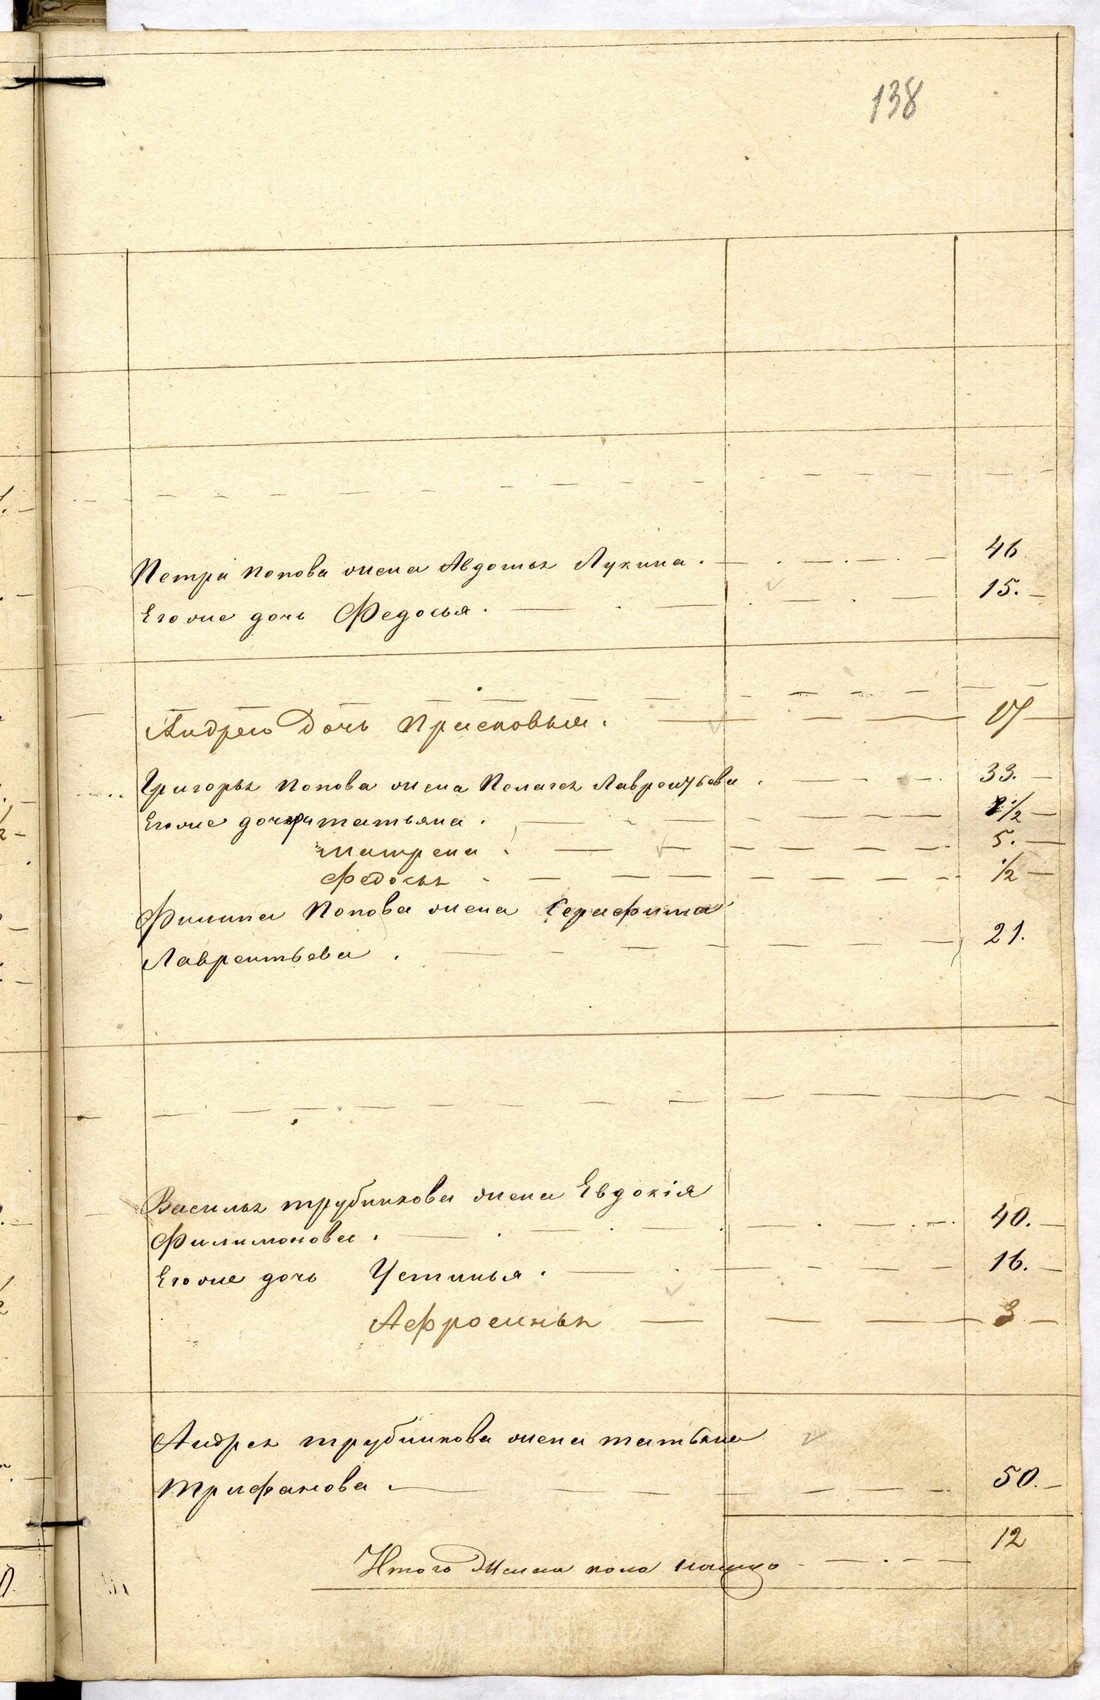 138
Петра Попова жена Авдотья Лукина. 46
Его же дочь Федосья. 15.
Андрею Дочь Прасковья. 17
Григорья Попова жена Пелагея Лаврентьева. 33.
Его же дочери татьяна. 1/2
матрена. 5.
Федосья 1/2
Филипа Попова жена Серафима
Лаврентьева. 21.
Василья трубникова жена Евдокія
Филимонова. 40.
Его же дочь Устинья. 16.
Афросинья 3
Андрея трубникова жена татьяна
трифанова. 50.
Итого Женска пола 12